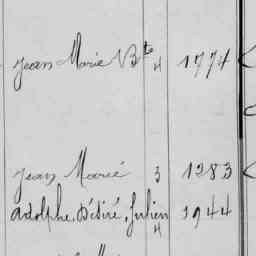 Jean Marie Bte 4 1774
Jean Marie 3 1283
Adolphe, Désiré, Julien 4 1944